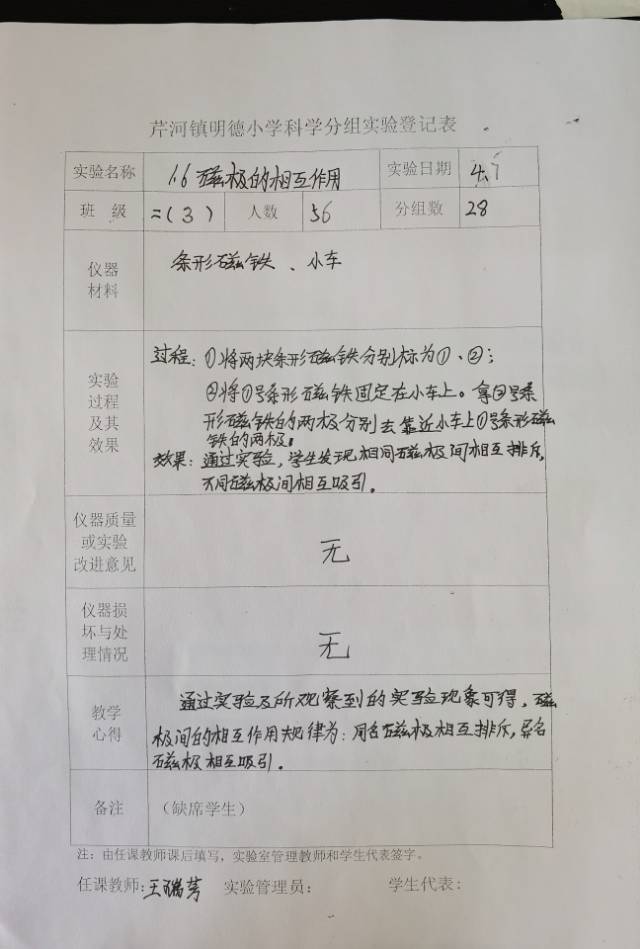 芹河镇明德小学科学分组实验登记表
实验名称 1.6 磁极的相互作用 实验日期 4.7
班 级 二(3) 人数 56 分组数 28
仪器
材料
条形磁铁、小车
实验
过程
及其
效果
过程:①将两块条形磁铁分别标为①、②;
②将①号条形磁铁固定在小车上。拿②号条
形磁铁的两极分别去靠近小车上①号条形磁
铁的两极。
效果:通过实验,学生发现相同磁极间相互排斥,
不同磁极间相互吸引。
仪器质量
或实验
改进意见
无
仪器损
坏与处
理情况
无
教学
心得
通过实验及所观察到的实验现象可得,磁
极间的相互作用规律为:同名磁极相互排斥,异名
磁极相互吸引。
备注 (缺席学生)
注:由任课教师课后填写,实验室管理教师和学生代表签字。
任课教师:王瑞芳 实验管理员: 学生代表: